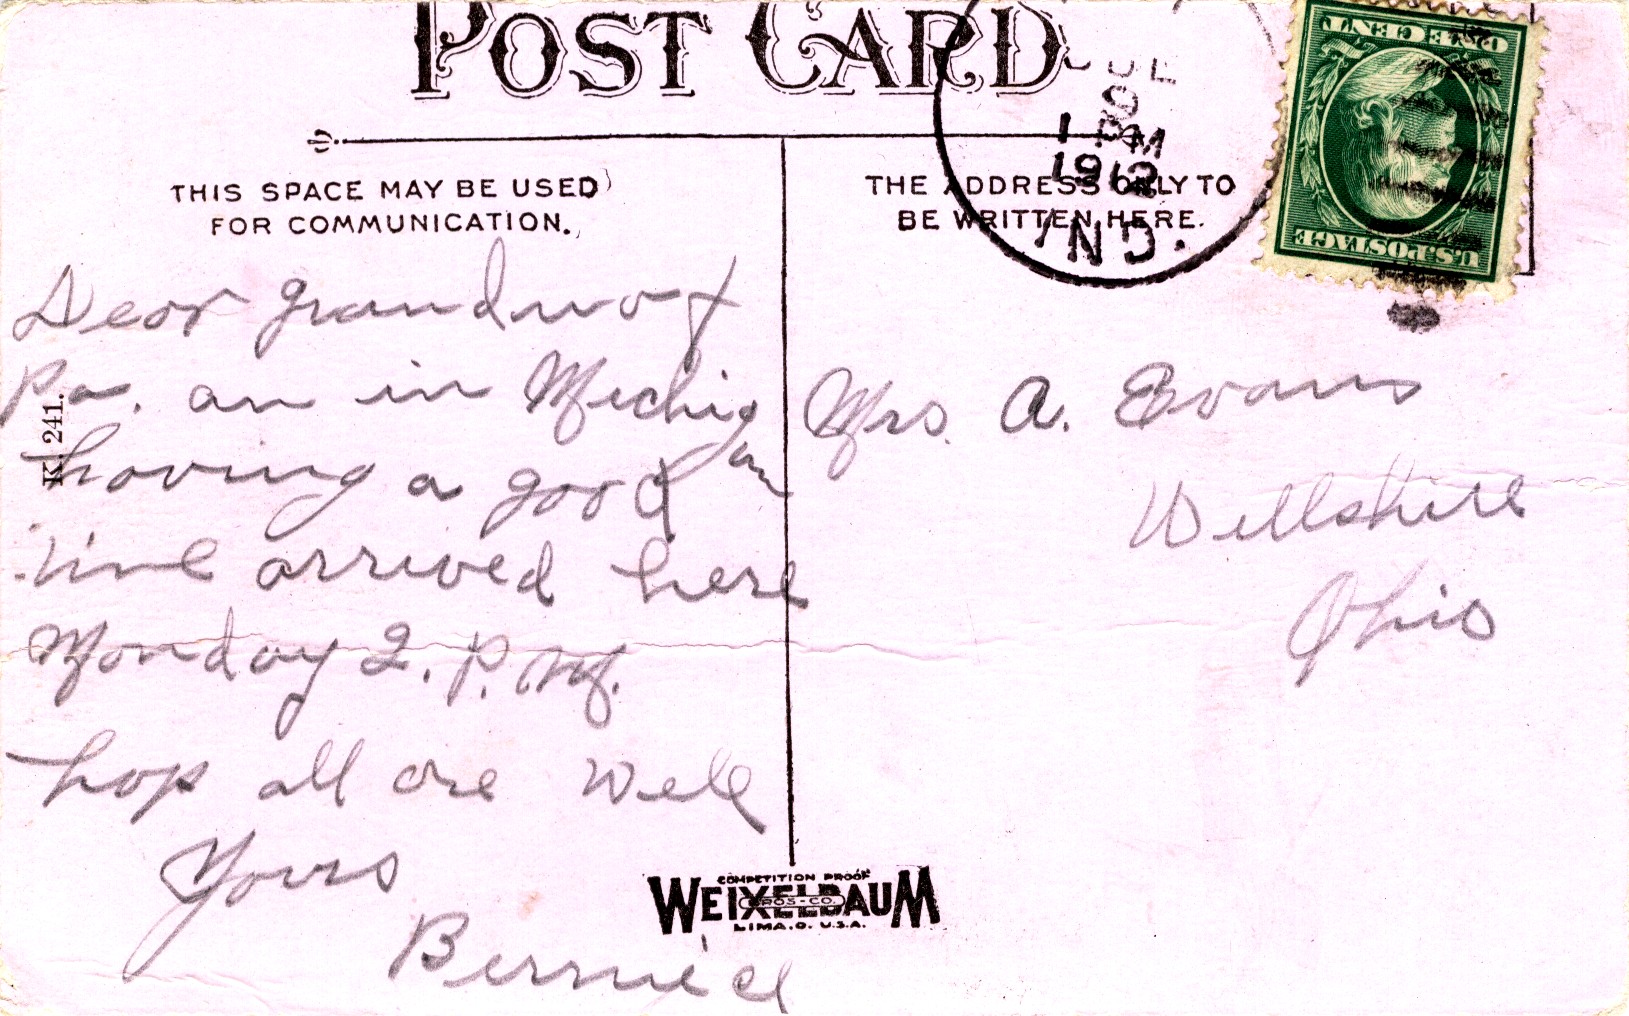 POST CARD
THIS SPACE MAY BE USED
FOR COMMUNICATION.
THE ADDRESS ONLY TO
BE WRITTEN HERE.
1
M
1912
IND.
ONE CENT
U.S. POSTAGE
Dear Grandma &
Pa. am in Michig
an
having a good
time arrived here
Monday 2. P. M.
hop all are well
Yours
Berniece
K. 241.
Mrs. A. Evans
Willshire
Ohio
COMPETITION PROOF
WEIXELBAUM
BROS-CO.
LIMA, O. U.S.A.